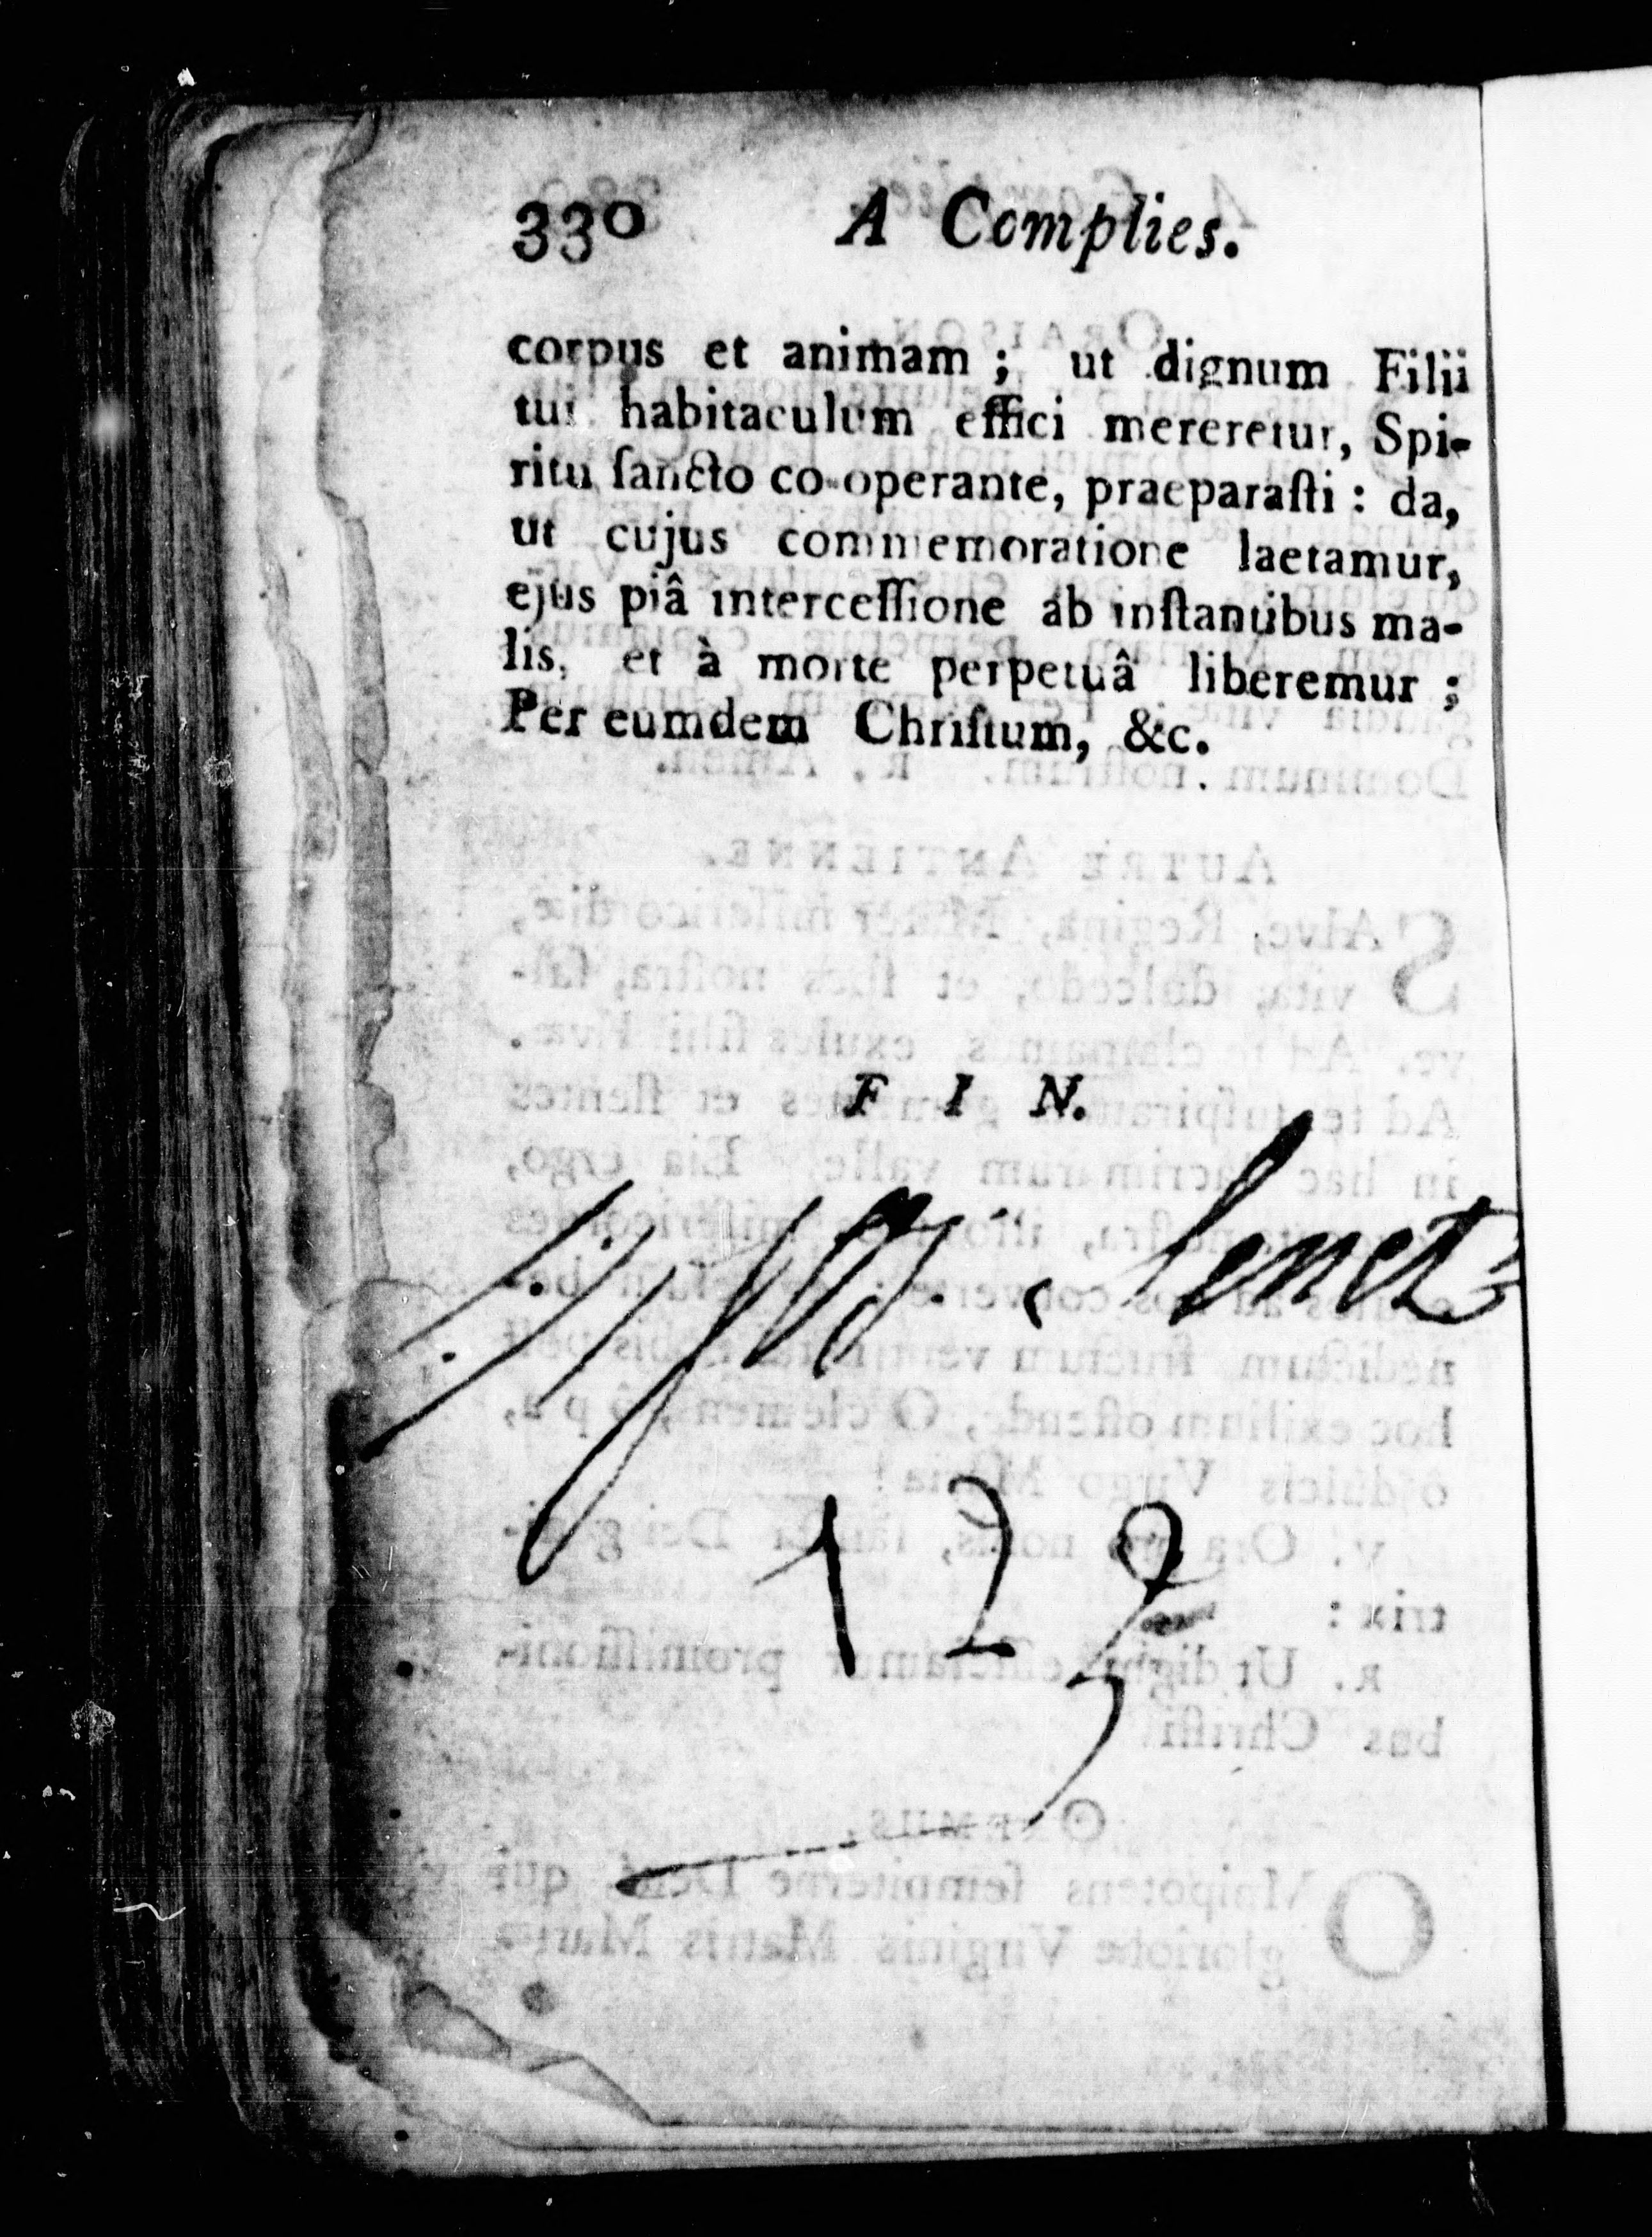 330 A Complies.
corpus et animam ; ut dignum Filii
tui habitaculum effici mereretur, Spi-
ritu ſancto co-operante, praeparaſti : da,
ut cujus commemoratione laetamur,
ejus piâ interceſſione ab inſtantibus ma-
lis, et à morte perpetuâ liberemur ;
Per eumdem Chriſtum, &c.
F I N.